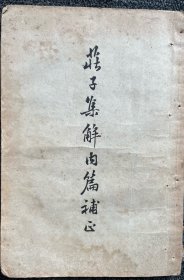 莊子集解內篇補正